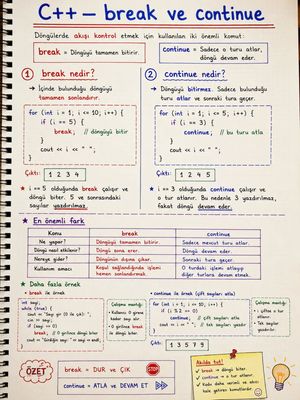 C++ – break ve continue
Döngülerde akışı kontrol etmek için kullanılan iki önemli komut:
break = Döngüyü tamamen bitirir.
continue = Sadece o turu atlar, döngü devam eder.
1 break nedir?
→ İçinde bulunduğu döngüyü
tamamen sonlandırır.
for (int i = 1; i <= 10; i++) {
if (i == 5) {
break; // döngüyü bitir
}
cout << i << " ";
}
Çıktı: 1 2 3 4
★ i == 5 olduğunda break çalışır ve
döngü biter. 5 ve sonrasındaki
sayılar yazdırılmaz.
2 continue nedir?
→ Döngüyü bitirmez. Sadece bulunduğu
turu atlar ve sonraki tura geçer.
for (int i = 1; i <= 5; i++) {
if (i == 3) {
continue; // bu turu atla
}
cout << i << " ";
}
Çıktı: 1 2 4 5
★ i == 3 olduğunda continue çalışır ve
o tur atlanır. Bu nedenle 3 yazdırılmaz,
fakat döngü devam eder.
★ En önemli fark
Konu break continue
Ne yapar? Döngüyü tamamen bitirir. Sadece mevcut turu atlar.
Döngü nasıl etkilenir? Döngü sona erer. Döngü devam eder.
Nereye gider? Döngünün dışına çıkar. Sonraki tura geçer.
Kullanım amacı Koşul sağlandığında işlemi
hemen sonlandırmak. O turdaki işlemi atlayıp
diğer turlara devam etmek.
★ Daha fazla örnek
• break ile örnek
int sayi;
while (true) {
cout << "Sayı gir (0 ile çık): ";
cin >> sayi;
if (sayi == 0)
break; // 0 girilince döngü biter
cout << "Girdiğin sayı: " << sayi << endl;
}
Çalışma mantığı:
• Kullanıcı 0 girene
kadar sayı alır.
• 0 girilince break
ile döngü biter.
• continue ile örnek (çift sayıları atla)
for (int i = 1; i <= 10; i++) {
if (i % 2 == 0)
continue; // çift sayıları atla
cout << i << " "; // tek sayıları yazdır
}
Çıktı: 1 3 5 7 9
Çalışma mantığı:
• Çift ise o tur
atlanır.
• Tek sayılar
yazdırılır.
ÖZET
break = DUR ve ÇIK STOP
continue = ATLA ve DEVAM ET
Akılda tut!
✓ break → döngü biter.
✓ continue → o tur atlanır.
✓ Kodu daha verimli ve akıcı
hale getirir.